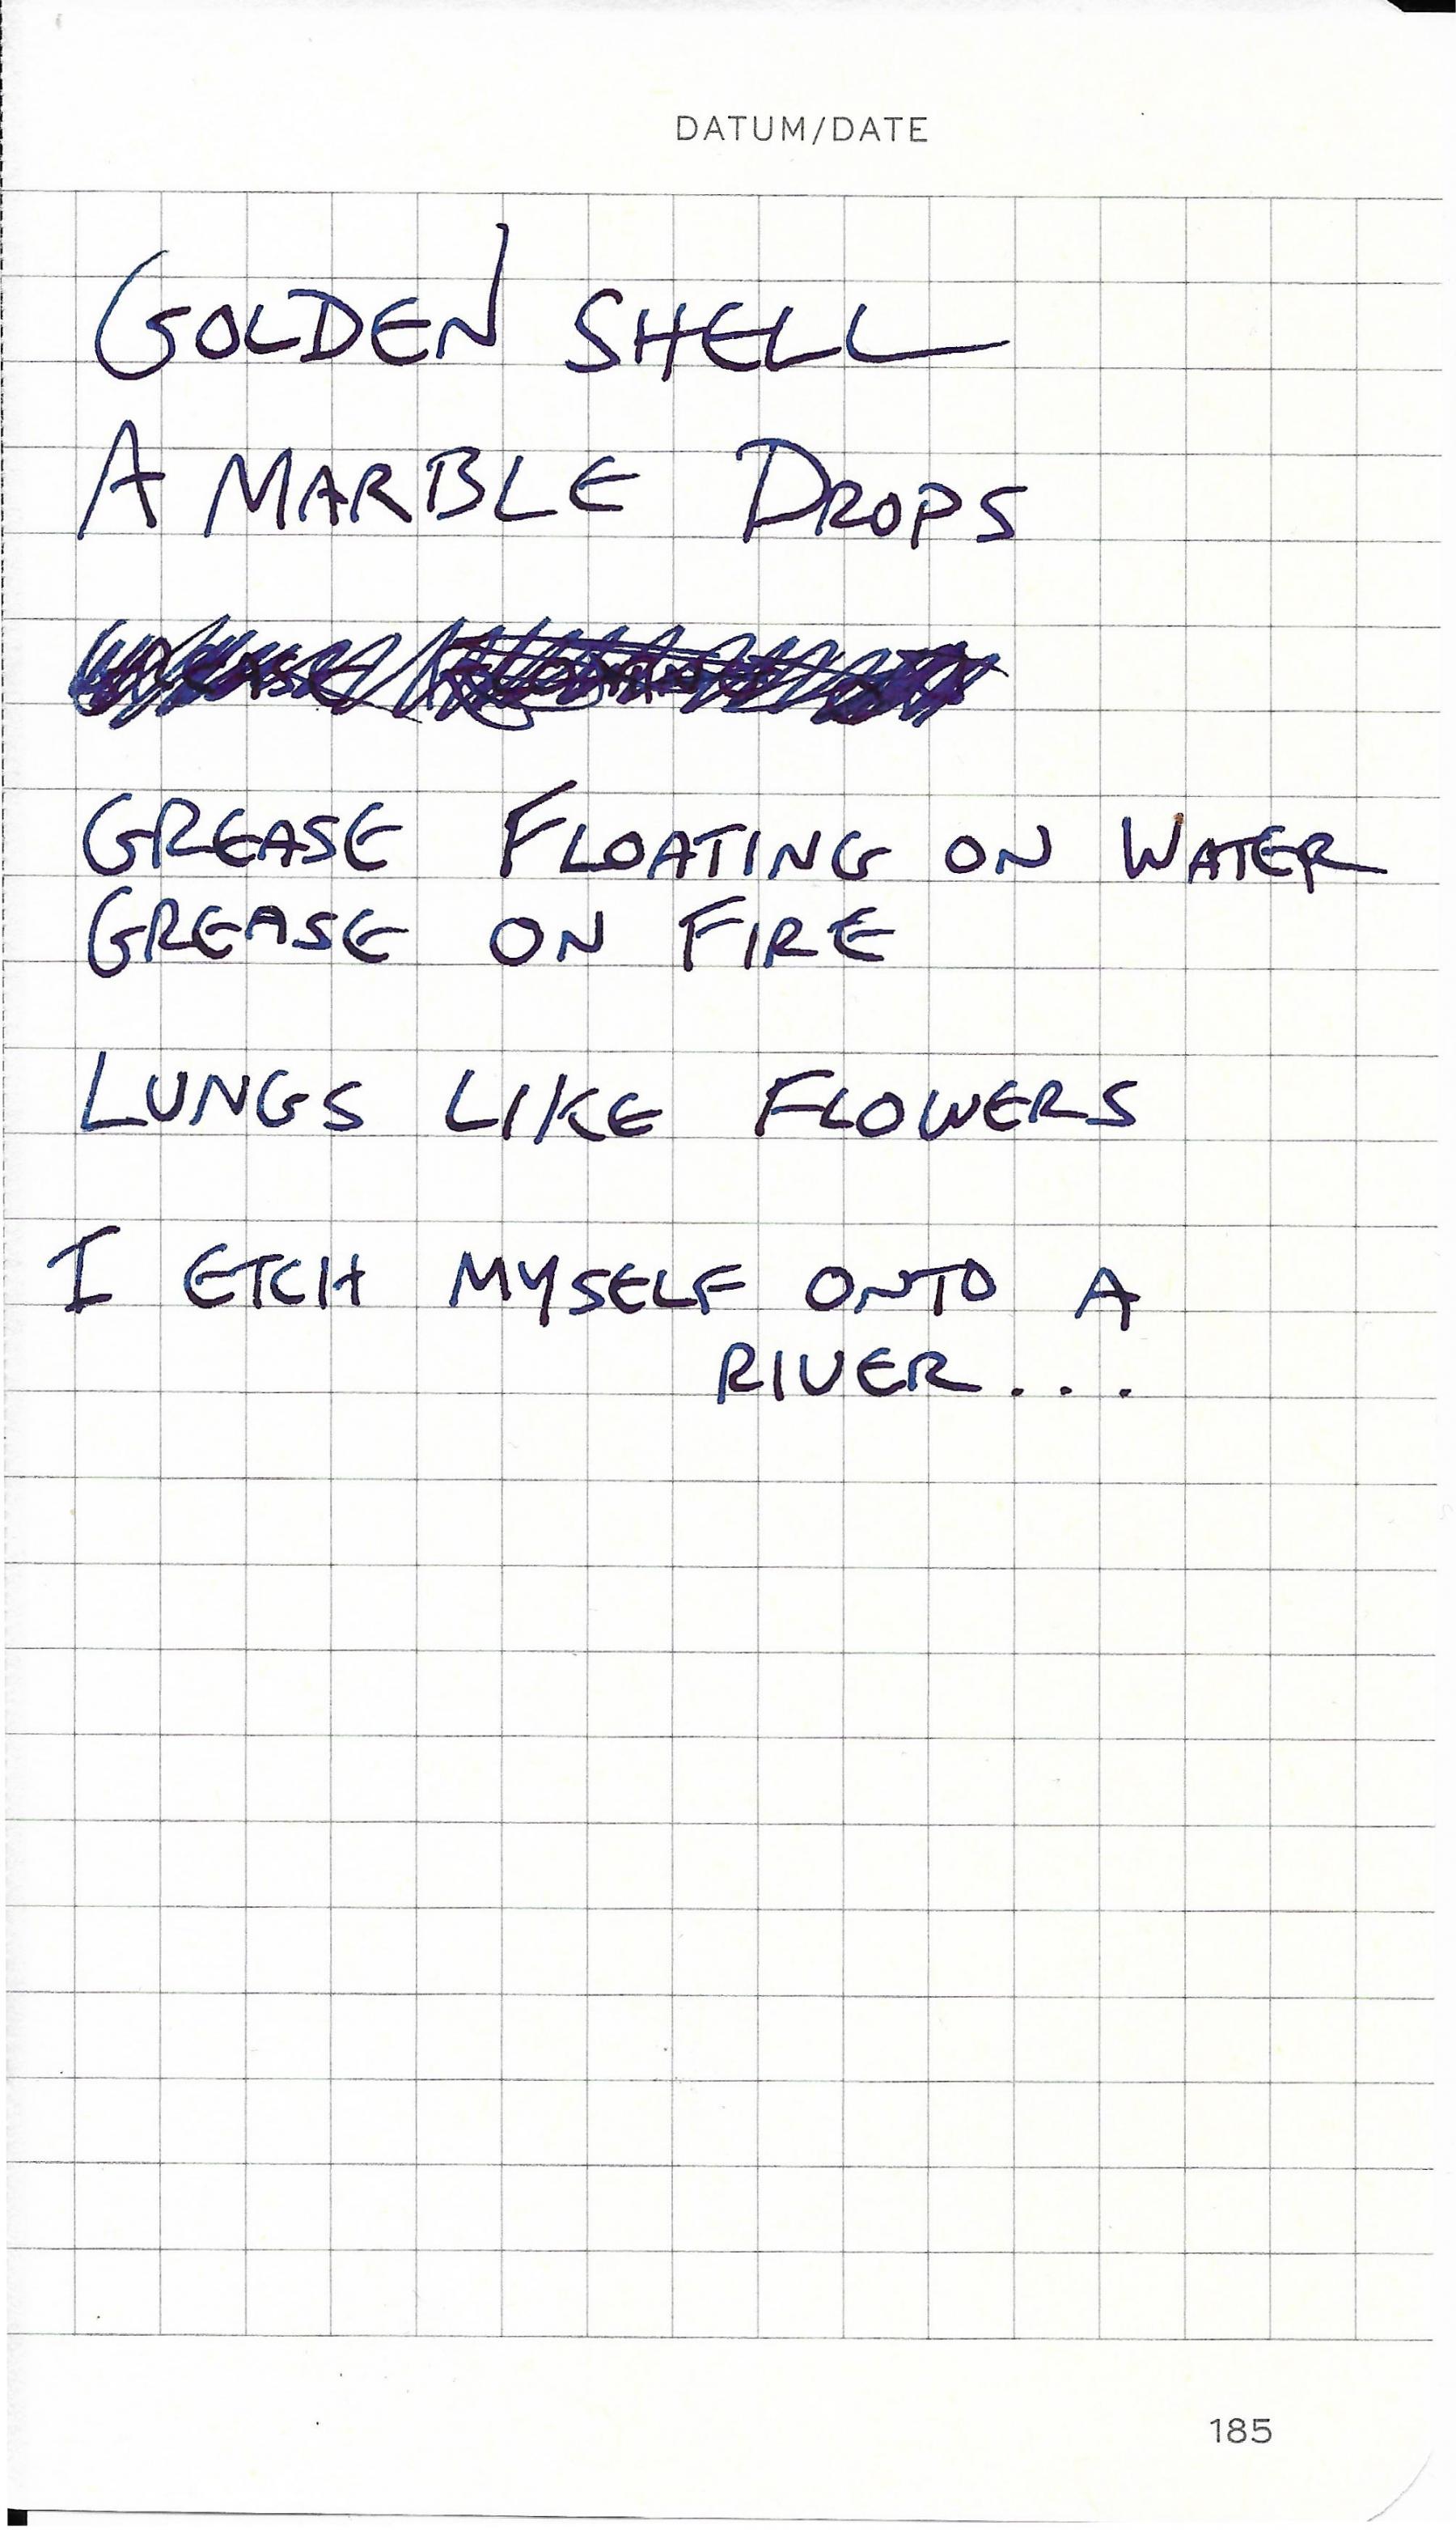 DATUM/DATE
GOLDEN SHELL
A MARBLE DROPS
GREASE FLOATING ON WATER
GREASE ON FIRE
LUNGS LIKE FLOWERS
I ETCH MYSELF ONTO A
RIVER...
185